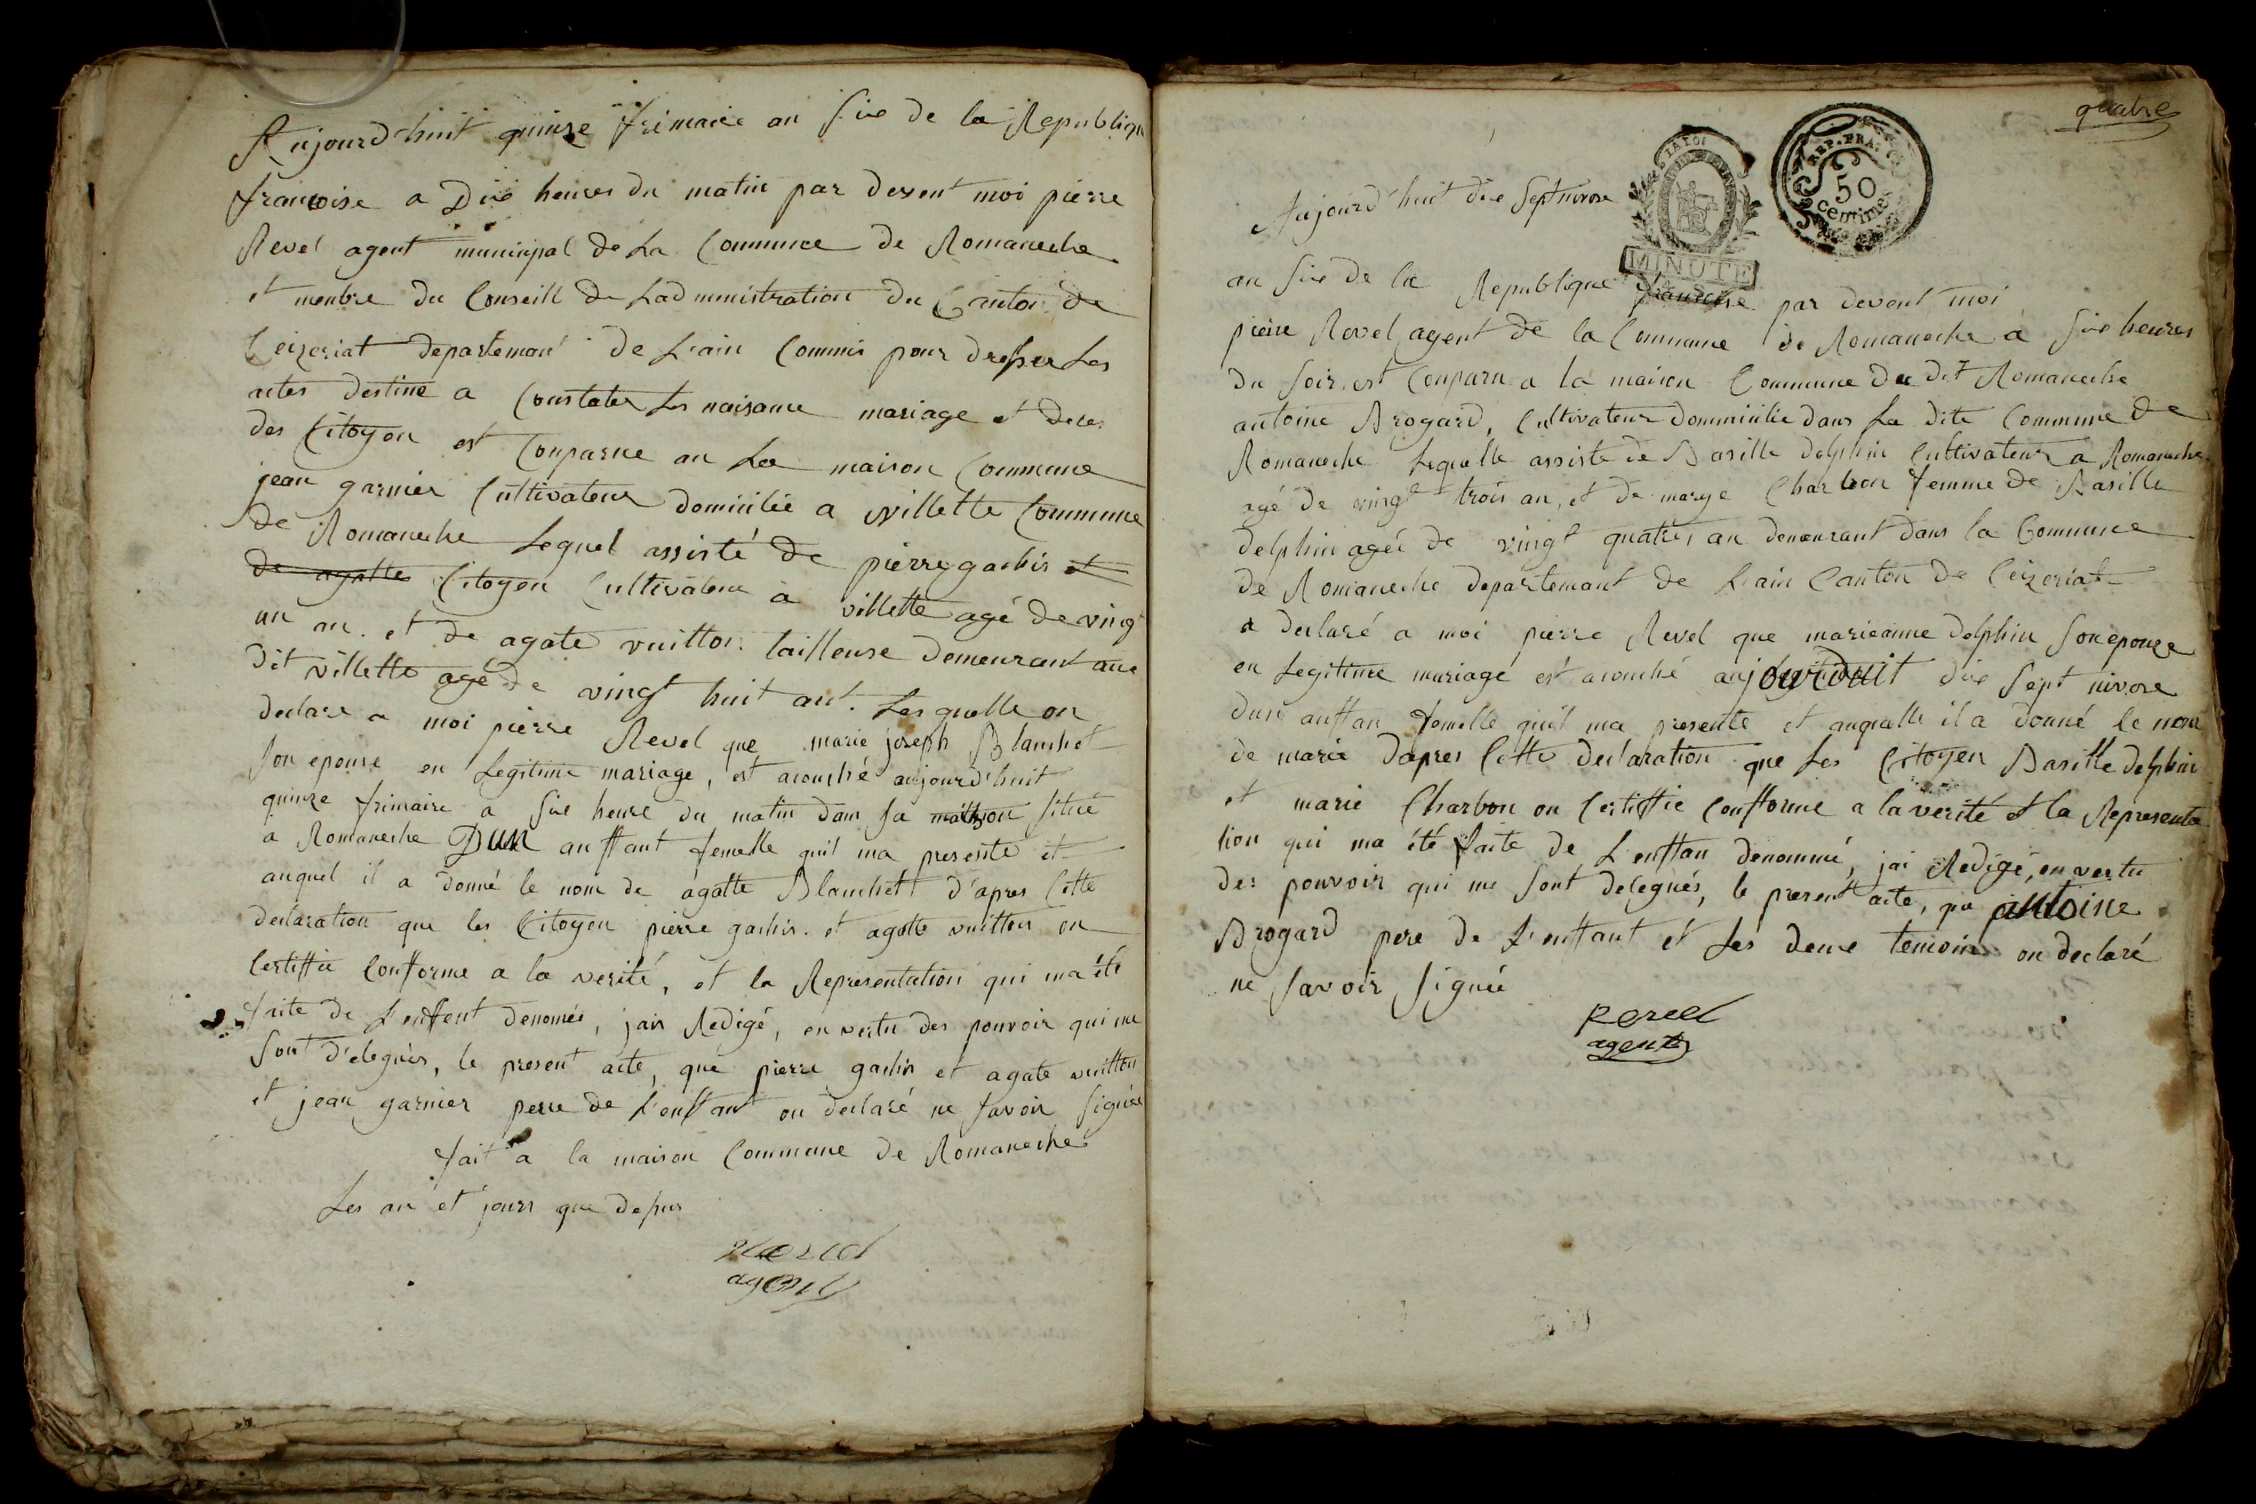 Aujourd'huit quinze frimaire an sixe de la Republique
francoise a dixe heures du matin par devent moi pierre
Revel agent municipal de La Commune de Romaneche
et menbre du Conseill de Ladministration du Canton de
Ceizeriat departemant de L'ain Commis pour dresser Les
actes destine a Constater Les naisance mariage et deces
des Citoyon est Conparue an La maison Commune
jean garnier Cultivateur domicilié a villette Commune
de Romaneche Lequel assisté de pierre garbis et
de agatte Citoyen Cultivateur a villette agé de ving
un an. et de agate vuitton tailleuse demeurant aue
dit villette agé de vingt huit ant. Lesquelle on
declare a moi pierre Revel que marie joseph Blanchet
son epouse en Legitime mariage, est acouché aujourd'huit
quinze frimaire a sixe heure du matin dans sa maison située
a Romaneche Dun anffant femelle quil ma presenté et
auquel il a donné le nom de agatte Blanchett d'apres Cette
declaration que les Citoyen pierre garbis et agatte vuitton on
Certiffié Confforme a la verité, et la Representation qui ma été
faite de L'enffent denomée, jais Redigé, en vertu des pouvoir qui me
sont d'elegués, le present acte, que pierre garbis et agate vuitton
et jean garnier perre de L'enffant on declaré ne savoir signée
fait a la maison Commune de Romaneche
Les an et jours que depus
Revel
agent
quatre
LA LOI
REP. FRA.
50
centimes
Aujourd'huit dixe Septnivose
MINUTE
an sixe de la Republique francoise par devent moi
pierre Revel agent de la Commune de Romaneche a sixe heures
du soir est Conparu a la maison Commune du dit Romaneche
antoine Brogard, Cultivateur domminilié dans La dite Commune de
Romaneche Lequelle assisté de Basille delphin Cultivateur a Romaneche
agé de vingt trois an, et de marye Charbon femme de Basille
delphin ageé de vingt quatre an demeurant dans la Commune
de Romaneche departemant de L'ain Canton de Ceizeriat
a declaré a moi pierre Revel que marieanne delphin son epouze
en Legitime mariage est acouché aujourduit dixe Sept nivose
dune anffan femelle qu'il ma presenté et auquelle il a donné le nom
de marie Dapres Cette declaration que Les Citoyen Basille delphin
et marie Charbon on Certiffié Confforme a la verité et la Representa
tion qui ma été faite de L'enffan denommé, jai Redigé, en vertu
des pouvoir qui me sont delegués, le present acte, que antoine
Brogard pere de L'enffant et Les deuxe temoins on declaré
ne savoir signée
Revel
agent